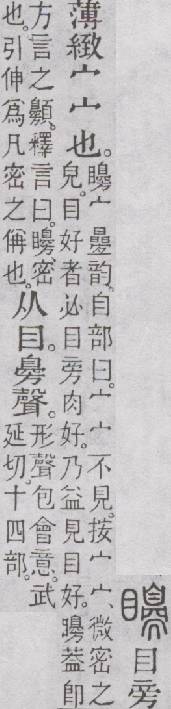 矏目旁
薄緻宀宀也。矏宀曡韵。自部曰。宀宀不見。按宀宀、微密之
皃。目好者必目旁肉好。乃益見目好。矏葢卽
方言之。釋言曰。矏、密
也。引伸爲凡密之偁也。从目。臱聲。形聲包會意。武
延切。十四部。